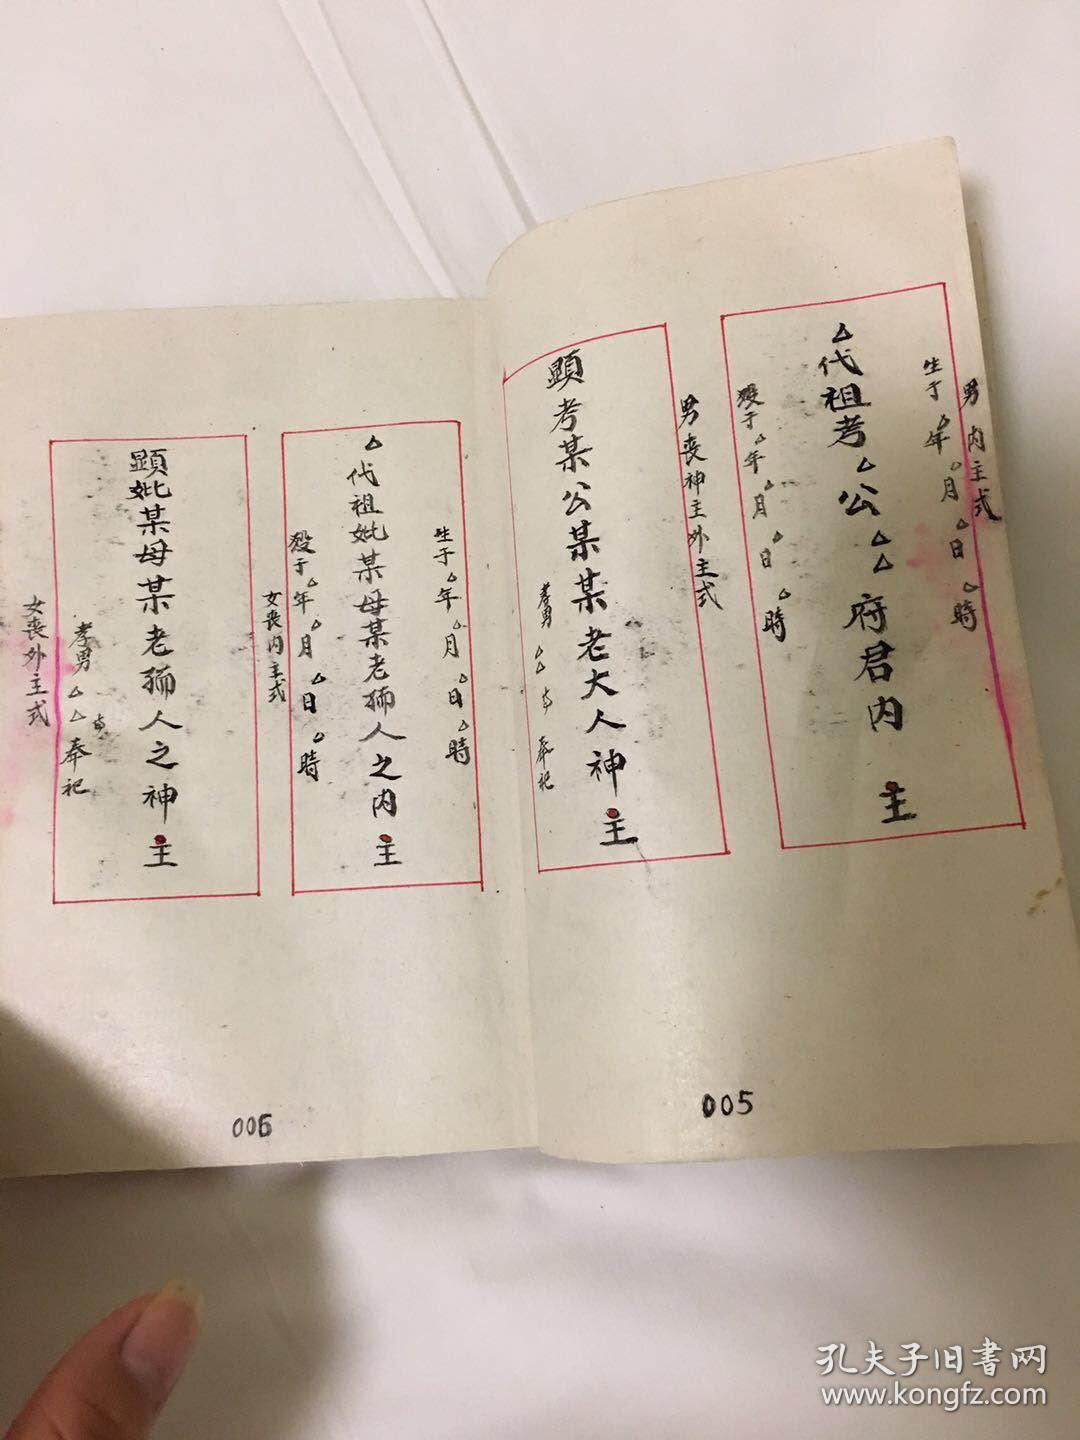 男內主式
生于△年△月△日△時
△代祖考△公△△府君內主
殁于△年△月△日△時
男喪神主外主式
顕考某公某某老大人神主
孝男△△ 奉祀
005
生于△年△月△日△時
△代祖妣某母某老孺人之內主
殁于△年△月△日△時
女喪內主式
顕妣某母某老孺人之神主
孝男△△ 奉祀
女喪外主式
006
孔夫子旧書网
www.kongfz.com